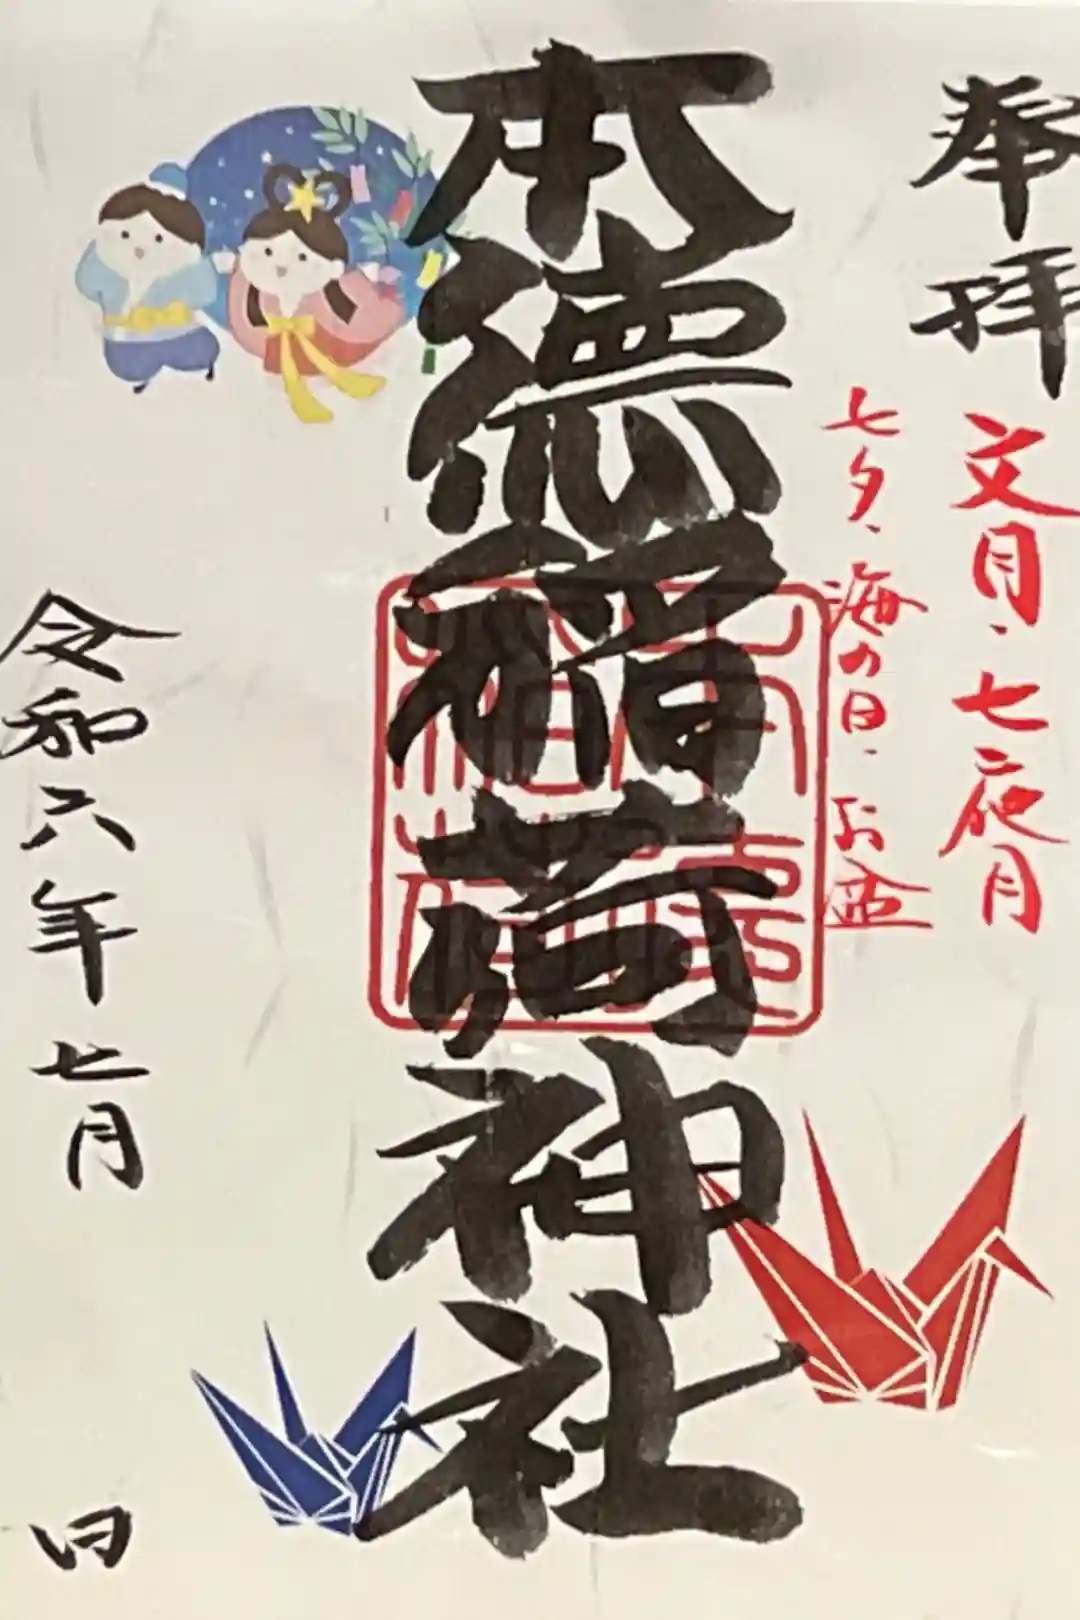 奉拝
文月・七夜月
七夕・海の日・お盆
本徳稲荷神社
令和六年七月
日